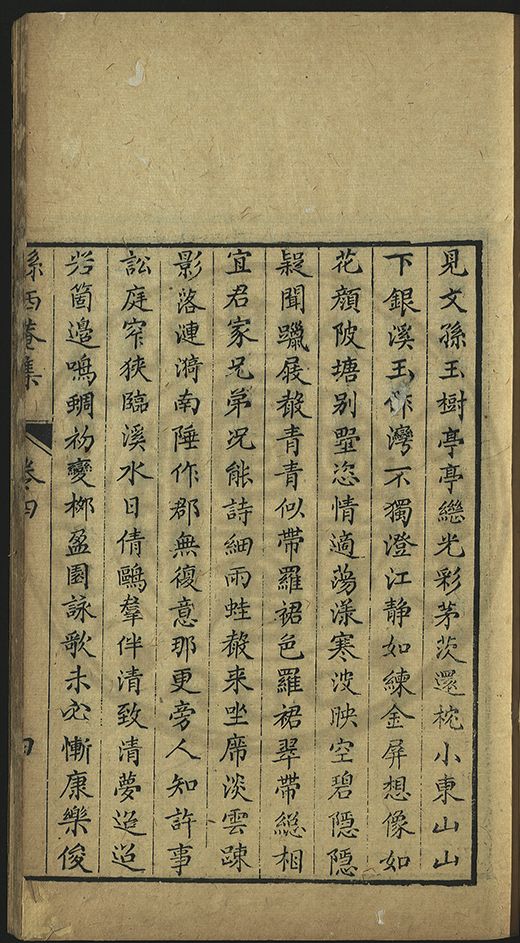 見文孫玉樹亭亭繼光彩茅茨還枕小東山山
下銀溪玉作灣不獨澄江静如練金屏想像如
花顔陂塘别墅恣情適蕩漾寒波映空碧隱隱
疑聞躐屐聲青青似帶羅裙色羅裙翠帶緫相
宜君家兄弟况能詩細雨蛙聲来坐席淡雲踈
影落漣漪南陲作郡無復意那更旁人知許事
訟庭窄狹臨溪水日倩鷗羣伴清致清夢迢迢
若箇邉鳴蜩初變栁盈園詠歌未必慚康樂俊
孫西菴集 卷四 四